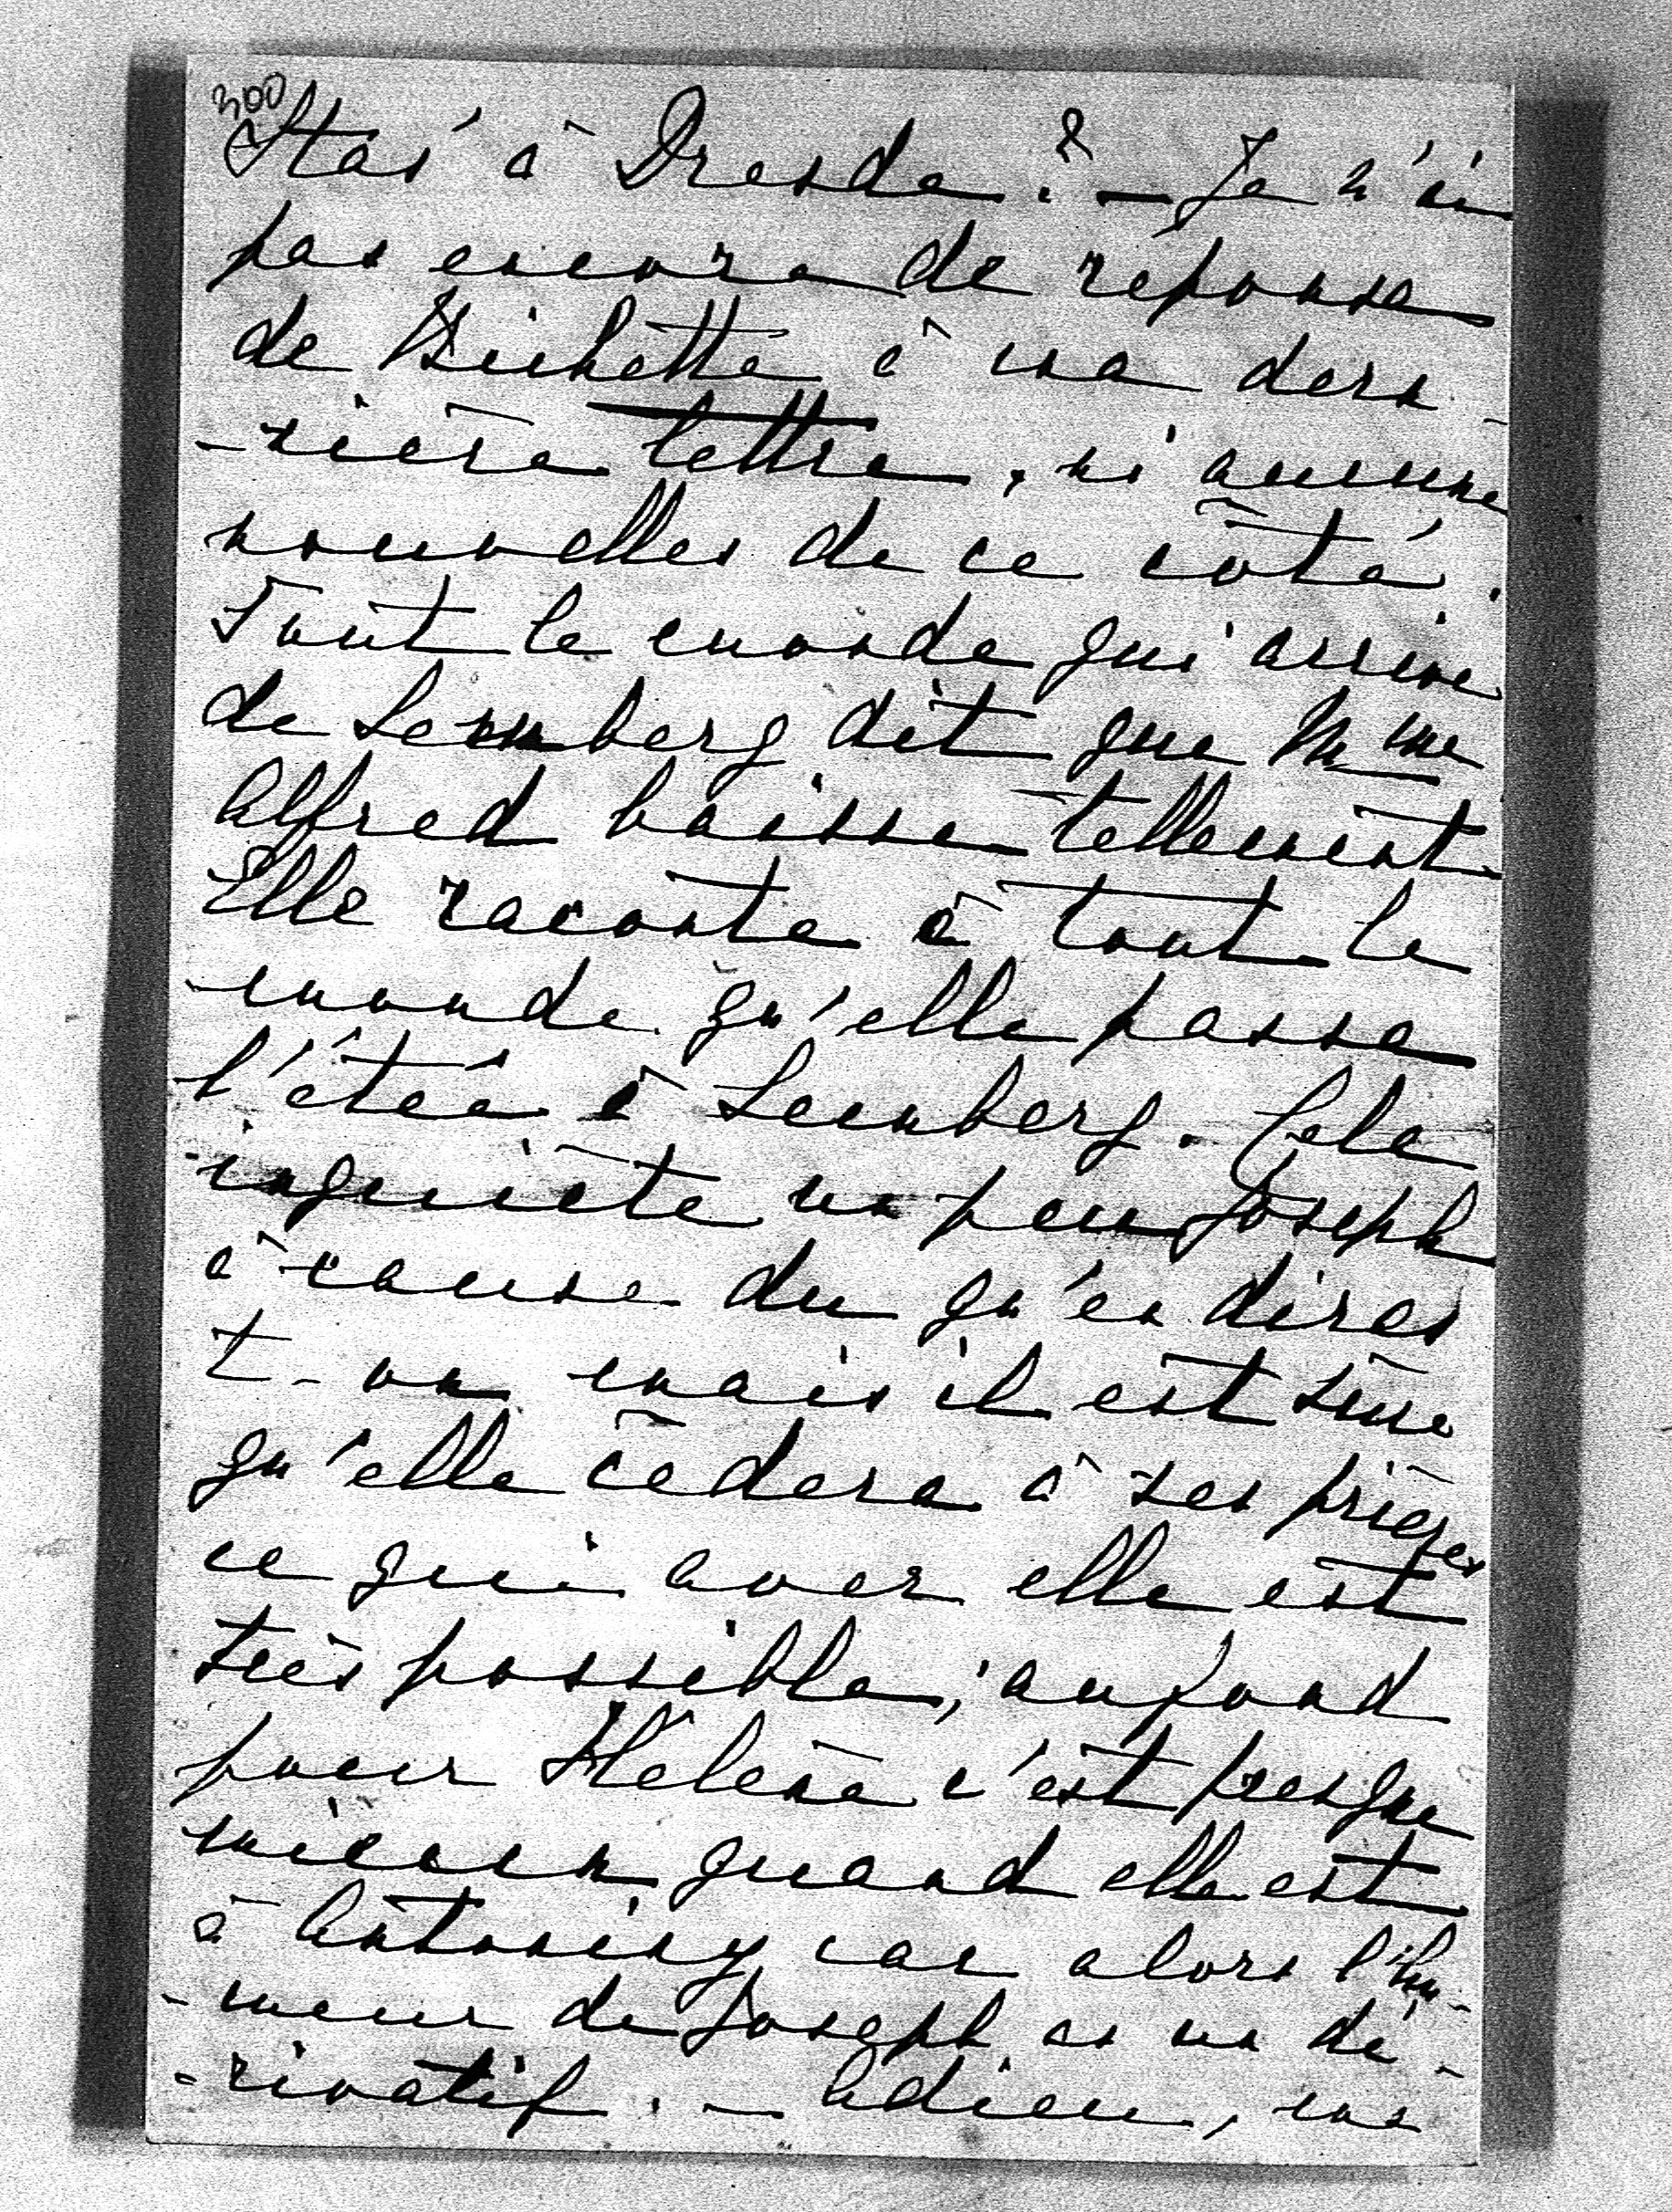 300
Staś à Dresde ? — Je n'ai
pas encore de réponse
de Bichette à ma der-
-nière lettre, ni aucune
nouvelles de ce côté.
Tout le monde qui arrive
de Lemberg dit que Mme
Alfred baisse tellement.
Elle raconte à tout le
monde qu'elle passe
l'étée à Lemberg. Cela
inquiète un peu Joseph
à cause du qu'en diras
t-on mais il est sûre
qu'elle cèdera à ses prières
ce qui avec elle est
très possible; au fond
pour Hélène c'est presque
mieux quand elle est
à Antoniny car alors l'hu-
-meur de Joseph a un dé-
-rivatif. — Adieu, ma